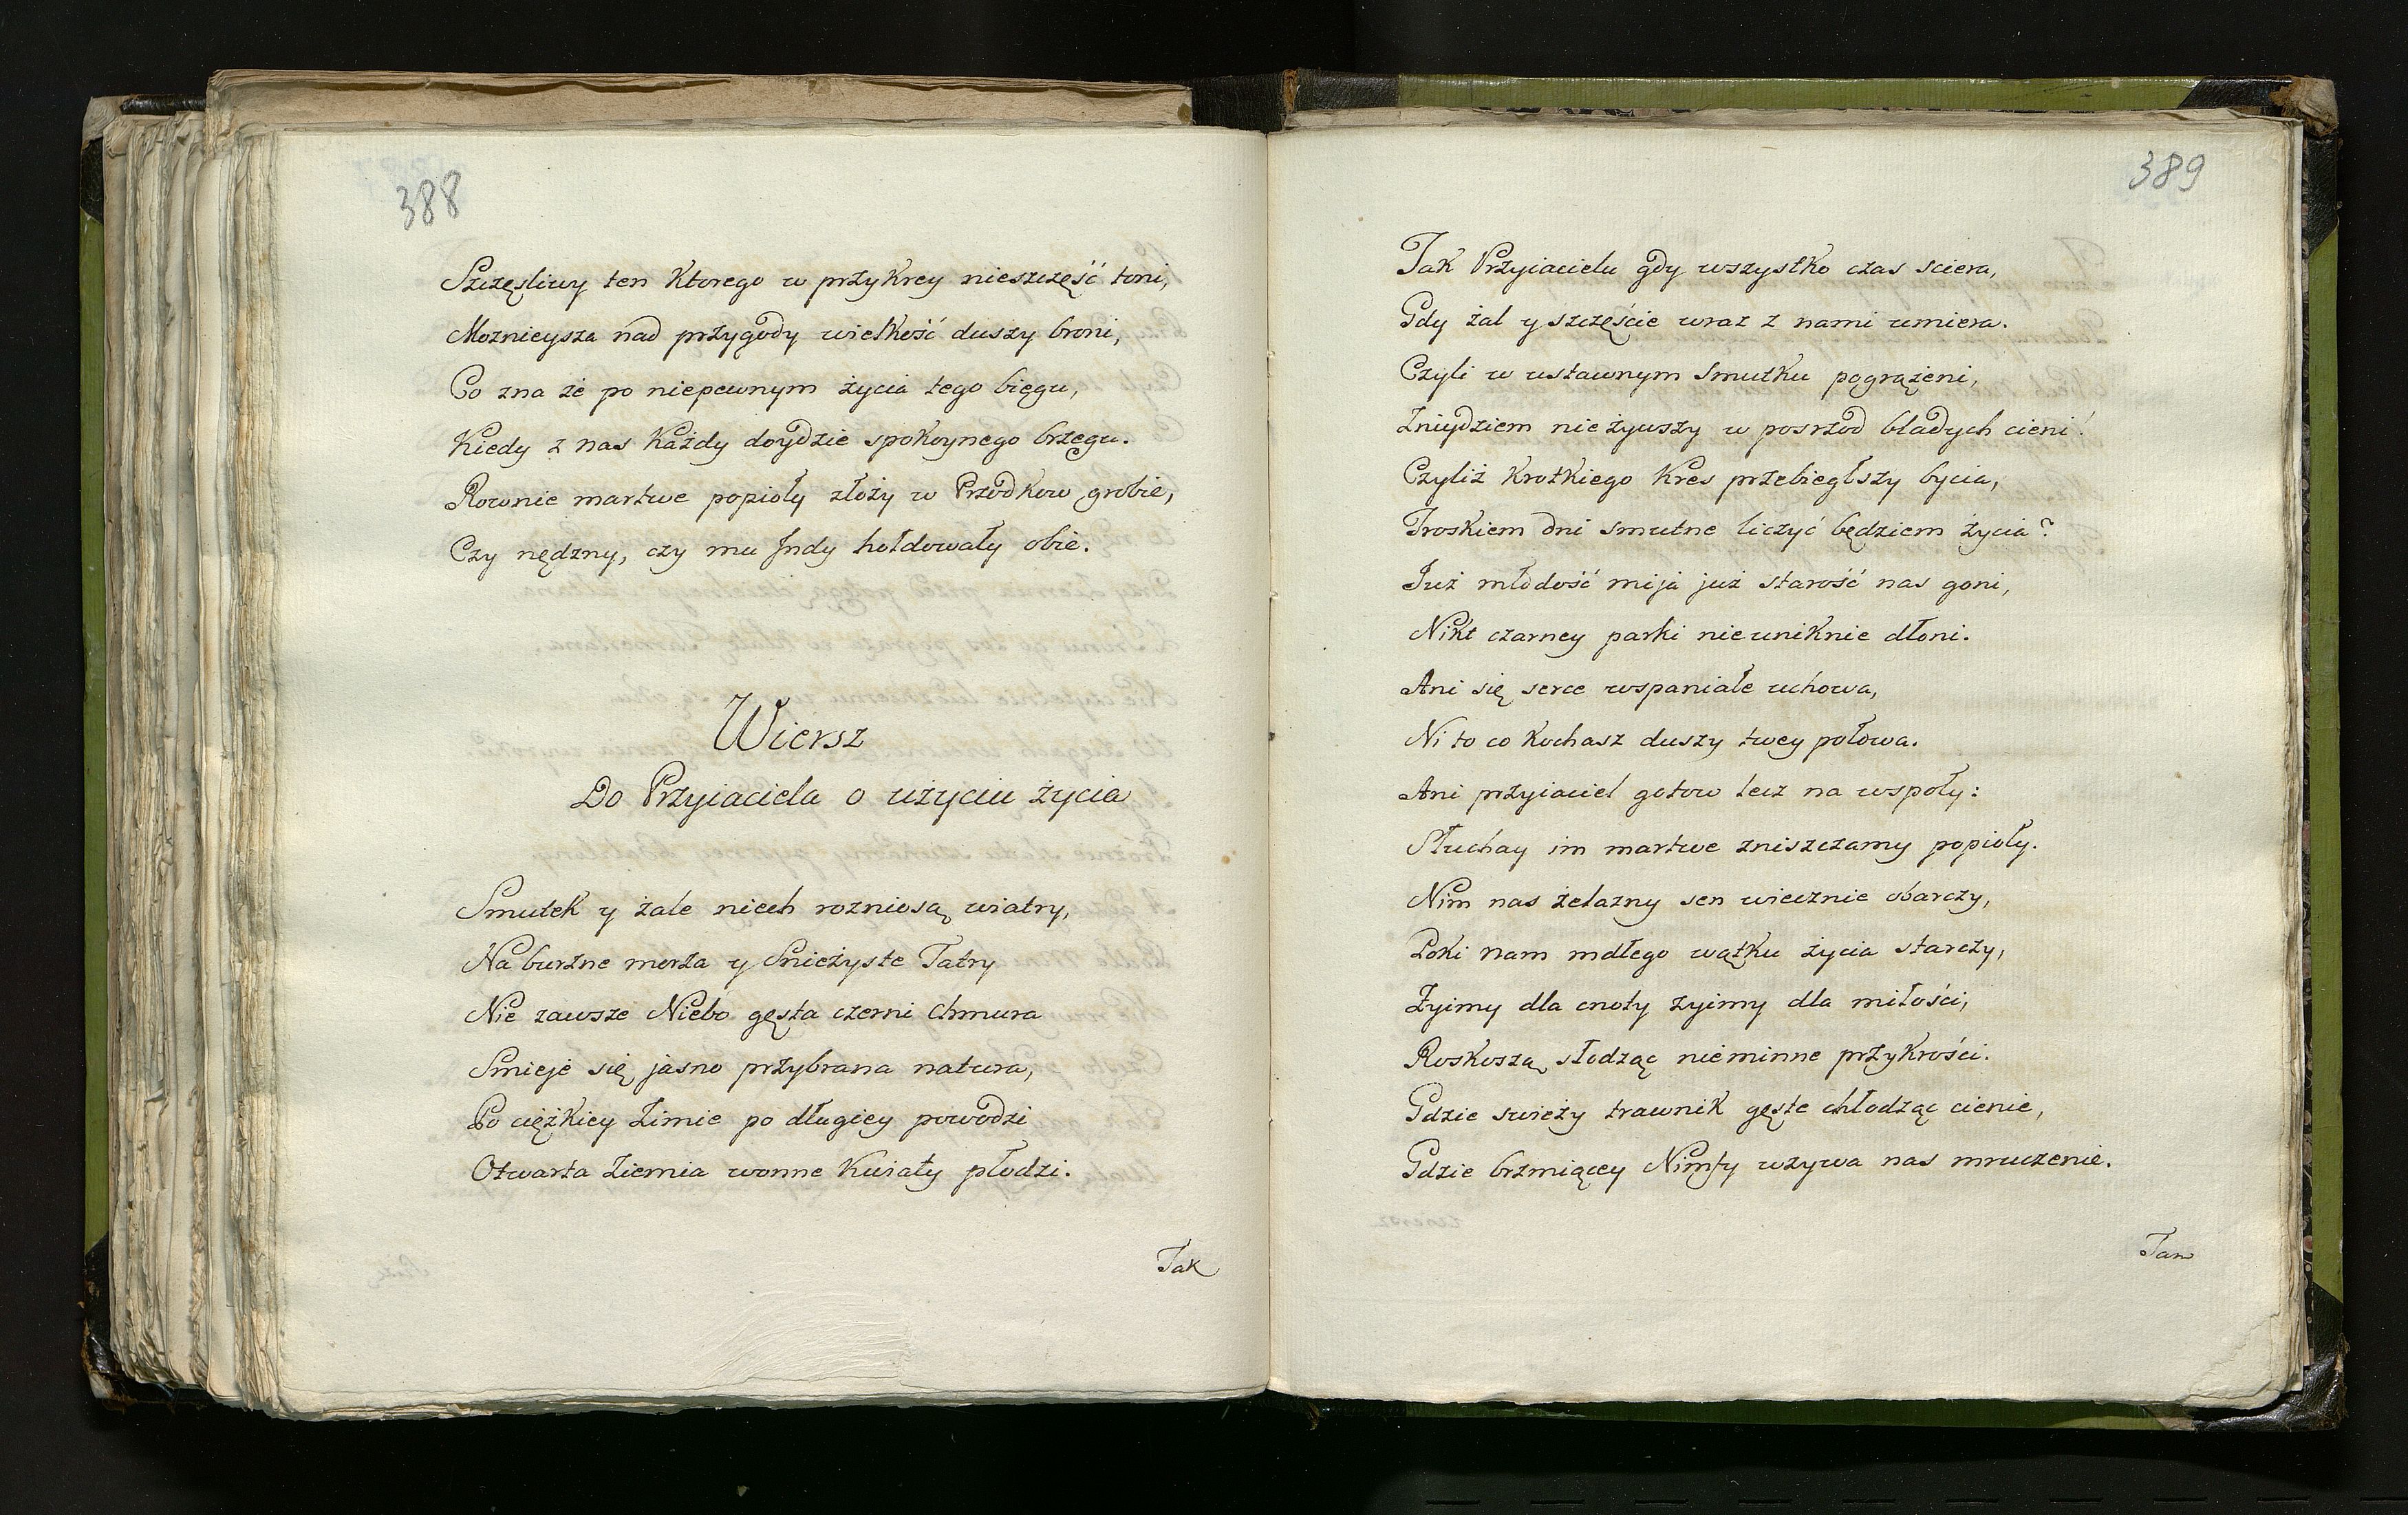 388
Szczęsliwy ten ktorego w przykrey nieszczęść toni,
Moznieysza nad przygody wielkość duszy broni,
Co zna że po niepewnym życia tego biegu,
Kiedy z nas każdy doydzie spokoynego brzegu.
Rownie martwe popioły złoży w Przodkow grobie,
Czy nędzny, czy mu Jndy hołdowały obie.
Wiersz
Do Przyiaciela o użyciu życia
Smutek y żale niech rozniosą wiatry,
Na burzne morza y Snieżyste Tatry
Nie zawsze Niebo gęsta czerni chmura
Smieje się jasno przybrana natura,
Po ciężkiey Zimie po długiey powodzi
Otwarta Ziemia wonne kwiaty płodzi.
Tak
389
Tak Przyiacielu gdy wszystko czas sciera,
Gdy żal y szczęście wraz z nami umiera.
Czyli w ustawnym Smutku pogrążeni,
Zniydziem nieżywszy w posrzod bladych cieni!
Czyliż krotkiego kres przebiegłszy bycia,
Troskiem dni smutne liczyć będziem życia?
Już młodość mija już starość nas goni,
Nikt czarney parki nieuniknie dłoni.
Ani się serce wspaniałe uchowa,
Ni to co kochasz duszy twey połowa.
Ani przyiaciel gotow lecz na wspoły:
Słuchay im martwe zniszczamy popioły.
Nim nas żelazny sen wiecznie obarczy,
Poki nam mdłego wątku życia starczy,
Żyimy dla cnoty żyimy dla miłości,
Roskoszą słodząc nieminne przykrości.
Gdzie swieży trawnik gęste chłodząc cienie,
Gdzie brzmiącey Nimfy wzywa nas mruczenie.
Tam